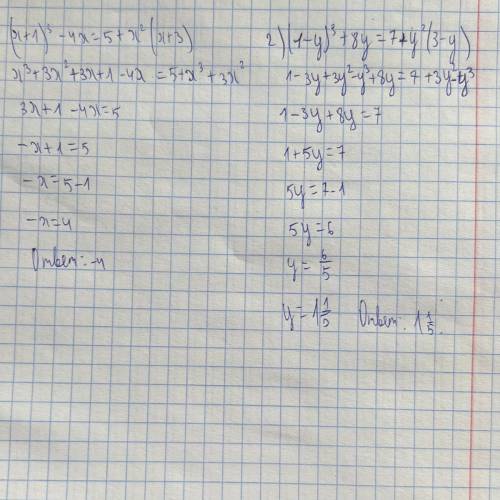 (x+1)³-4x=5+x²(x+3)
x³+3x²+3x+1-4x=5+x³+3x²
3x+1-4x=5
-x+1=5
-x=5-1
-x=4
Ответ: -4
2) (1-y)³+8y=7+y²(3-y)
1-3y+3y²-y³+8y=7+3y-y³
1-3y+8y=7
1+5y=7
5y=7-1
5y=6
y=6/5
y=1 1/5 Ответ: 1 1/5.